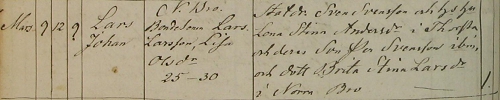 Mars 9 12 9 Lars Johan
N. Bro.
Bondesona Lars
Larsson, Lisa
Olsdr
25-30
Statdr. Sven Svensson och hustru
Lena Stina Andersdr i
och deras Son Per Svensson ibm
och dott. Brita Stina Larsdr
i Norra Bro
1.